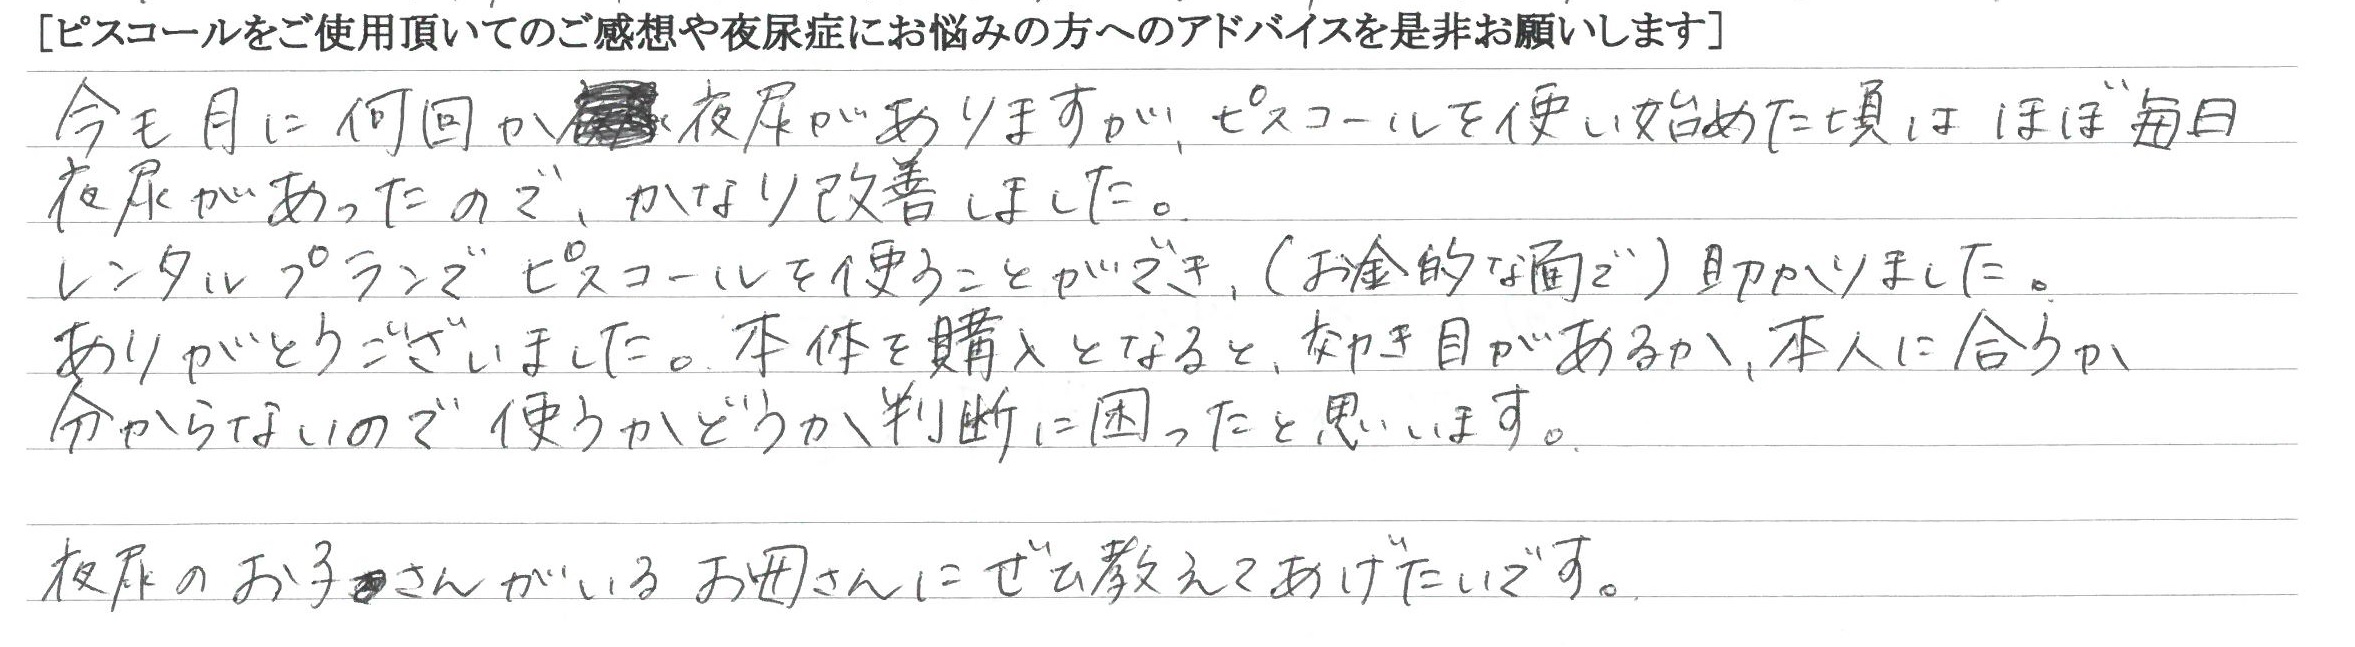 [ピスコールをご使用頂いてのご感想や夜尿症にお悩みの方へのアドバイスを是非お願いします]
今も月に何回か夜尿がありますが、ピスコールを使い始めた頃は ほぼ毎日
夜尿があったので、かなり改善しました。
レンタルプランで ピスコールを使うことができ、(お金的な面で)助かりました。
ありがとうございました。本体を購入となると、効き目があるか、本人に合うか
分からないので 使うかどうか判断に困ったと思います。
夜尿のお子さんがいるお母さんに ぜひ教えてあげたいです。